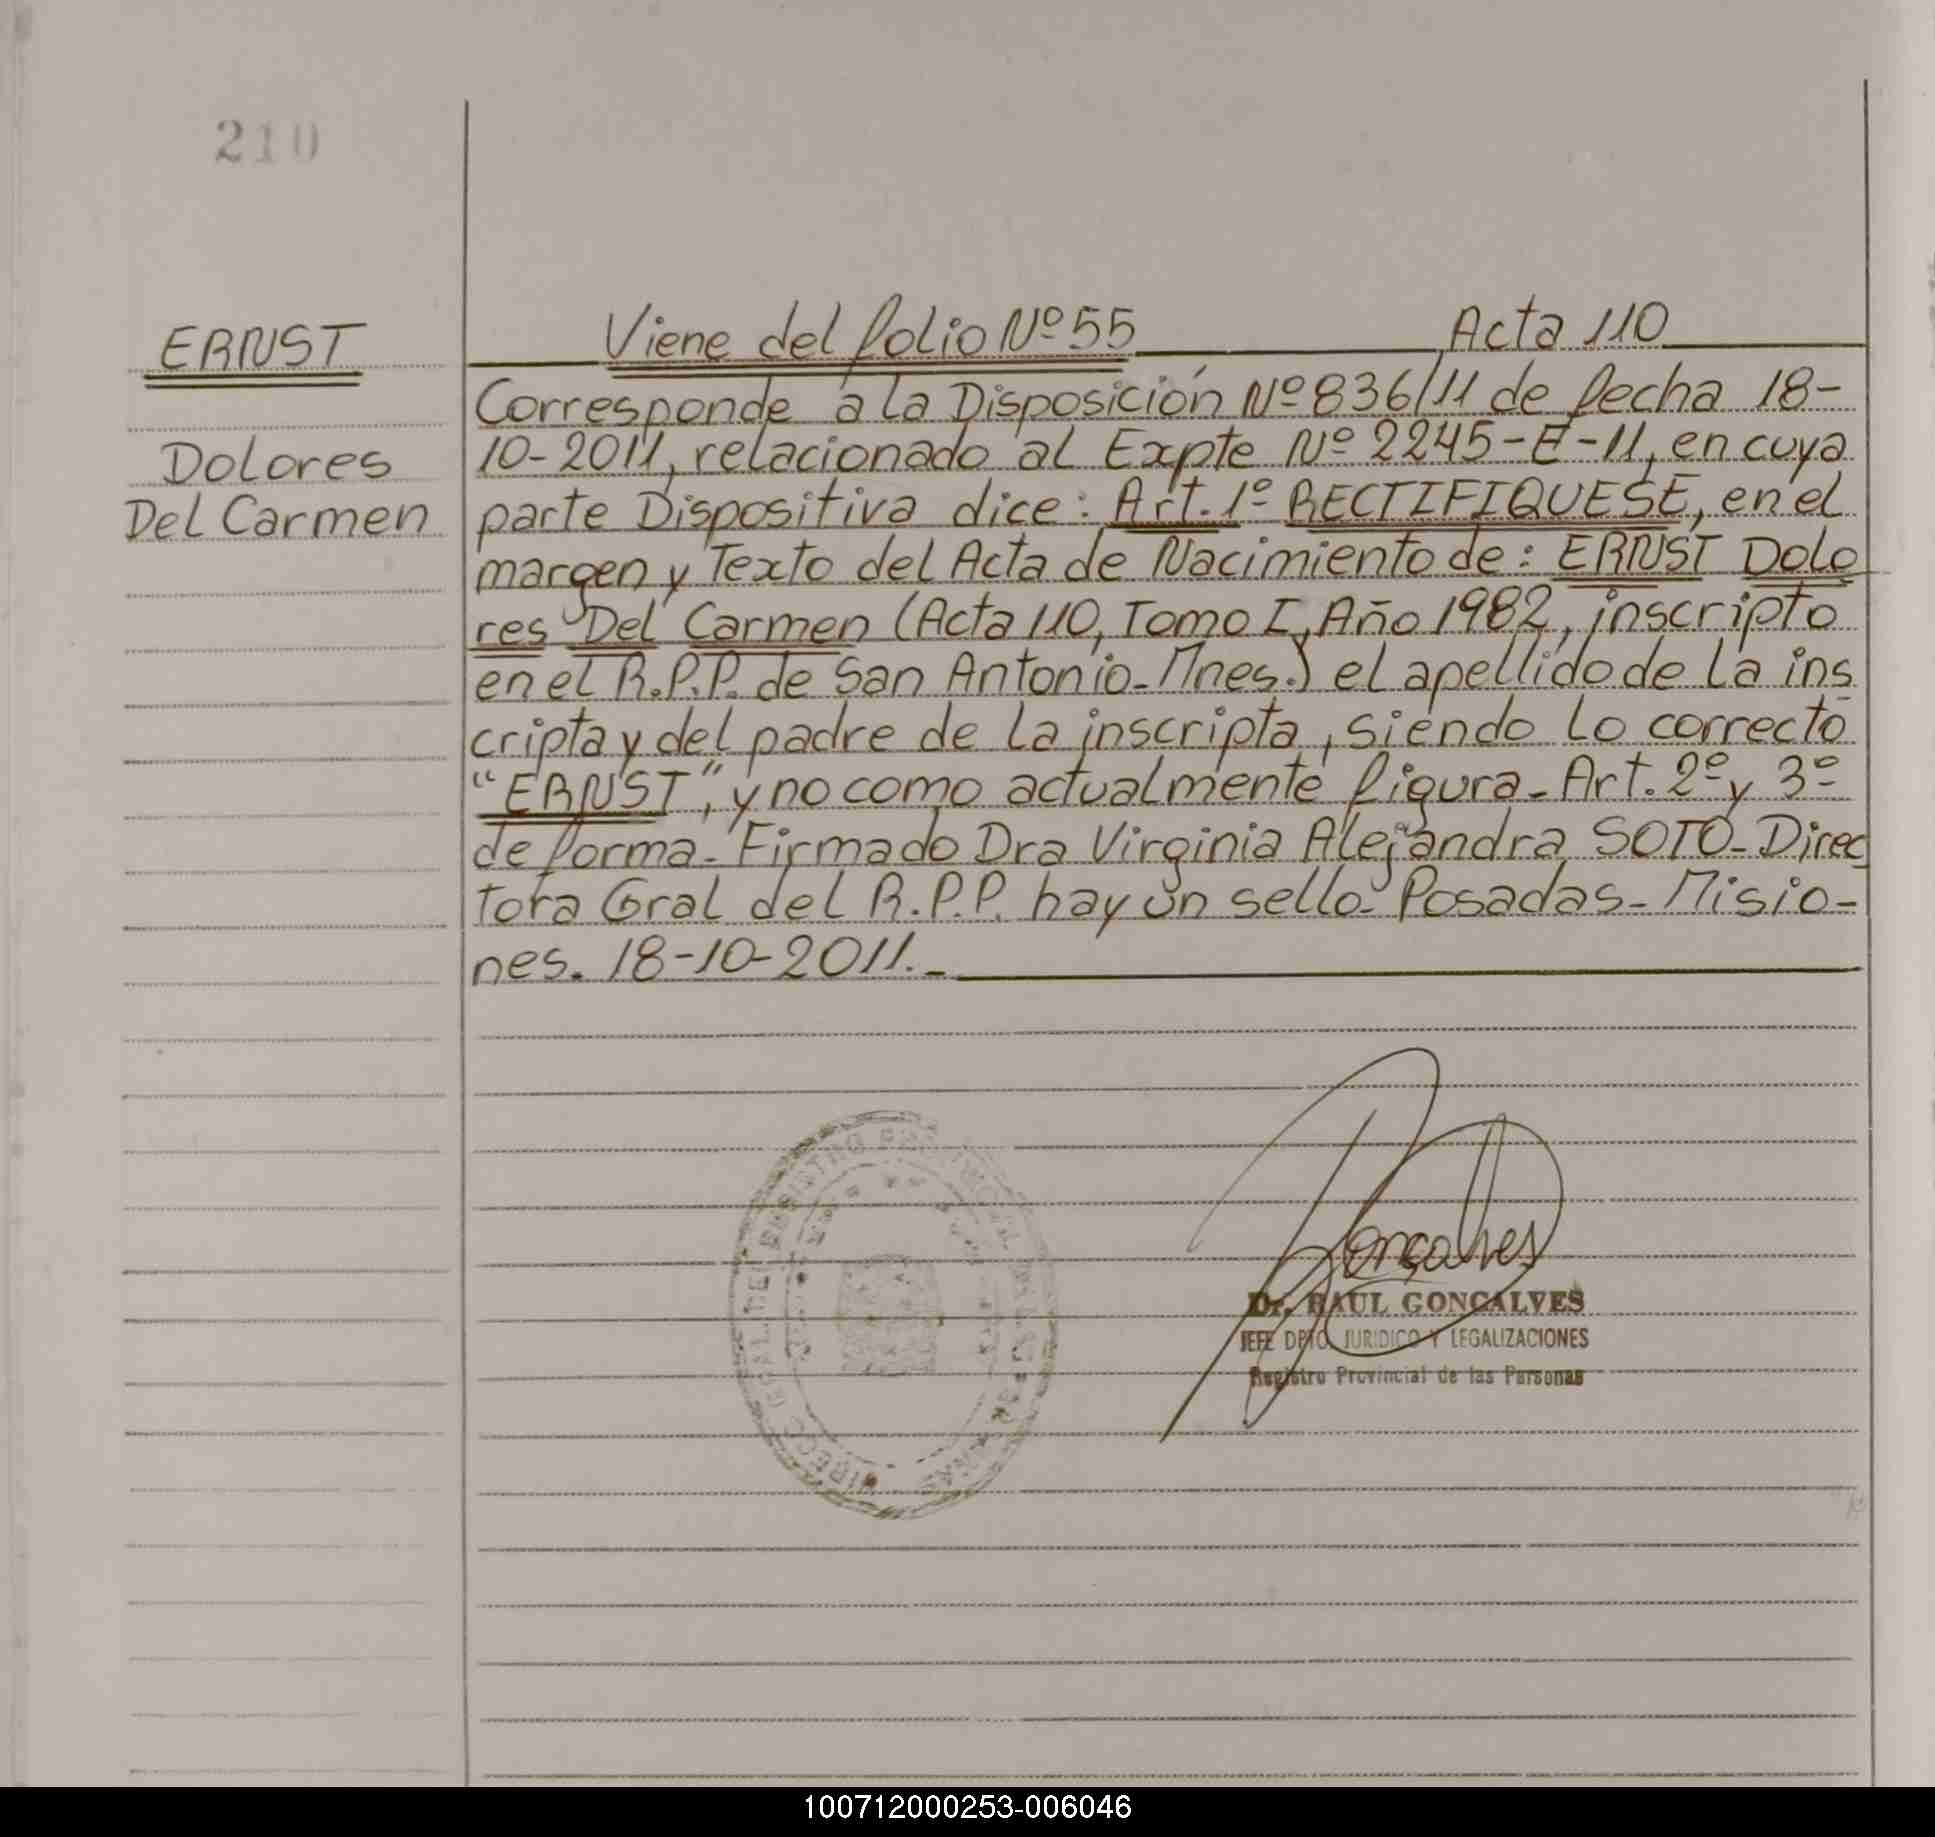 210
ERNST
Dolores
Del Carmen
Viene del folio Nº 55 Acta 110
Corresponde a la Disposición Nº 836/11 de fecha 18-
10-2011, relacionado al Expte Nº 2245-E-11, en cuya
parte Dispositiva dice: Art. 1º RECTIFIQUESE, en el
margen y Texto del Acta de Nacimiento de: ERNST Dolo
res Del Carmen (Acta 110, Tomo I, Año 1982, inscripto
en el R.P.P. de San Antonio-Mnes.) el apellido de la ins
cripta y del padre de la inscripta, siendo lo correcto
"ERNST", y no como actualmente figura- Art. 2º y 3º
de forma- Firmado Dra Virginia Alejandra SOTO- Direc
tora Gral del R.P.P. hay un sello- Posadas- Misio-
nes. 18-10-2011.-
Goncalves
Dr. RAUL GONCALVES
JEFE DPTO. JURIDICO Y LEGALIZACIONES
Registro Provincial de las Personas
100712000253-006046